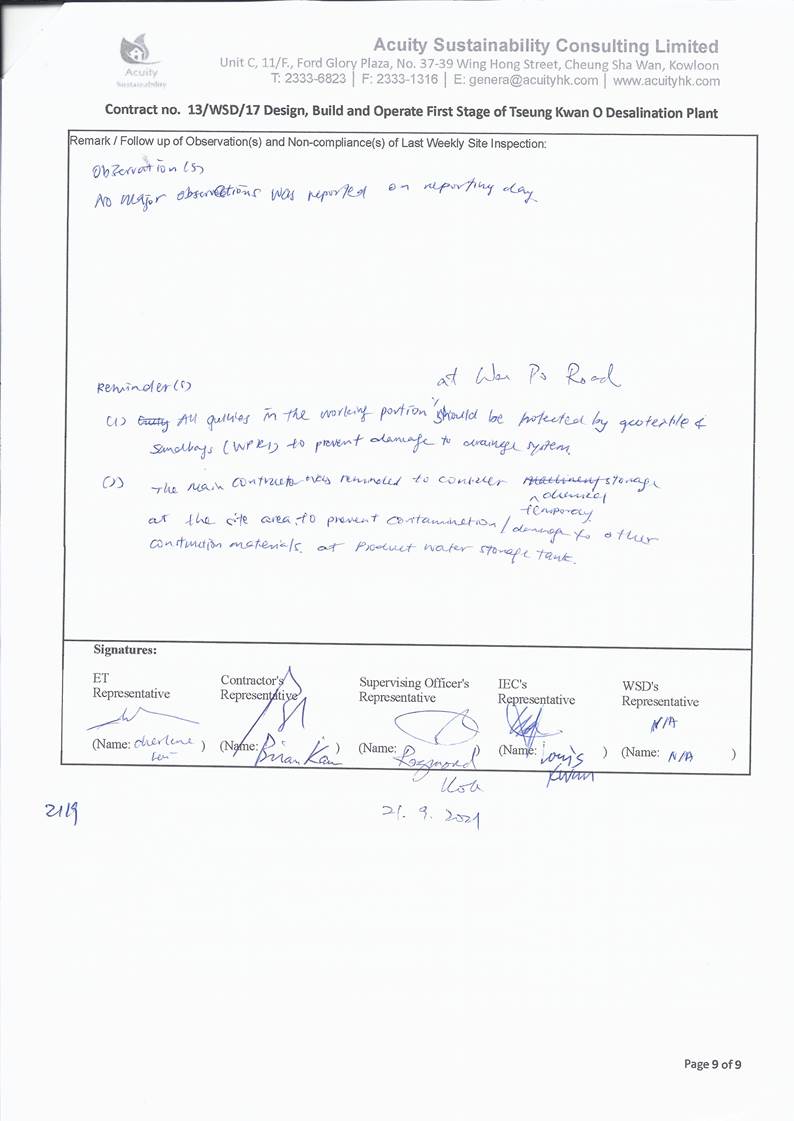 Acuity
Sustainability
Acuity Sustainability Consulting Limited
Unit C, 11/F., Ford Glory Plaza, No. 37-39 Wing Hong Street, Cheung Sha Wan, Kowloon
T: 2333-6823 | F: 2333-1316 | E: genera@acuityhk.com | www.acuityhk.com
Contract no. 13/WSD/17 Design, Build and Operate First Stage of Tseung Kwan O Desalination Plant
Remark / Follow up of Observation(s) and Non-compliance(s) of Last Weekly Site Inspection:
Observation(s)
No major observations was reported on reporting day
Reminder(s)
at Wan Po Road
(1) All gullies in the working portion should be protected by geotextile &
Sandbags (WPR1) to prevent damage to drainage system.
(2) The main contractor was reminded to consider storage
chemical
temporary
at the site area, to prevent contamination / damage to other
construction materials. at Product water storage tank.
Signatures:
ET
Representative
Contractor's
Representative
Supervising Officer's
Representative
IEC's
Representative
WSD's
Representative
N/A
(Name: )
(Name: Brian Kan )
(Name: Raymond )
(Name: Louis Kwan )
(Name: N/A )
21/9
21. 9. 2021
Page 9 of 9